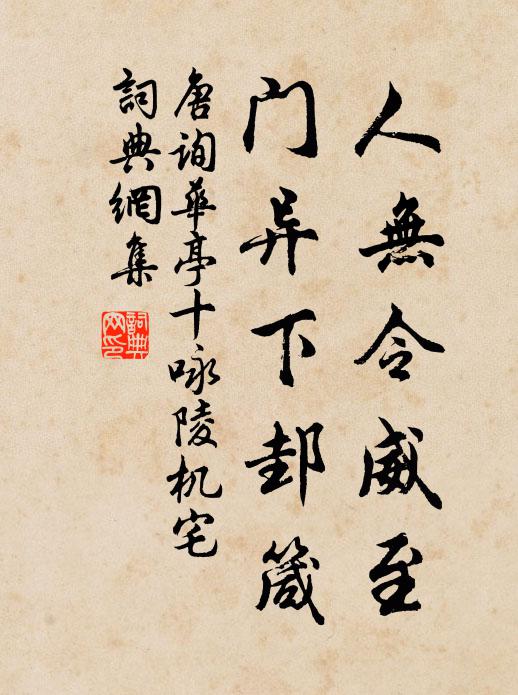 人無令威至
门异下邽箴
唐詢華亭十咏陵机宅
詞典網集
詞典网印